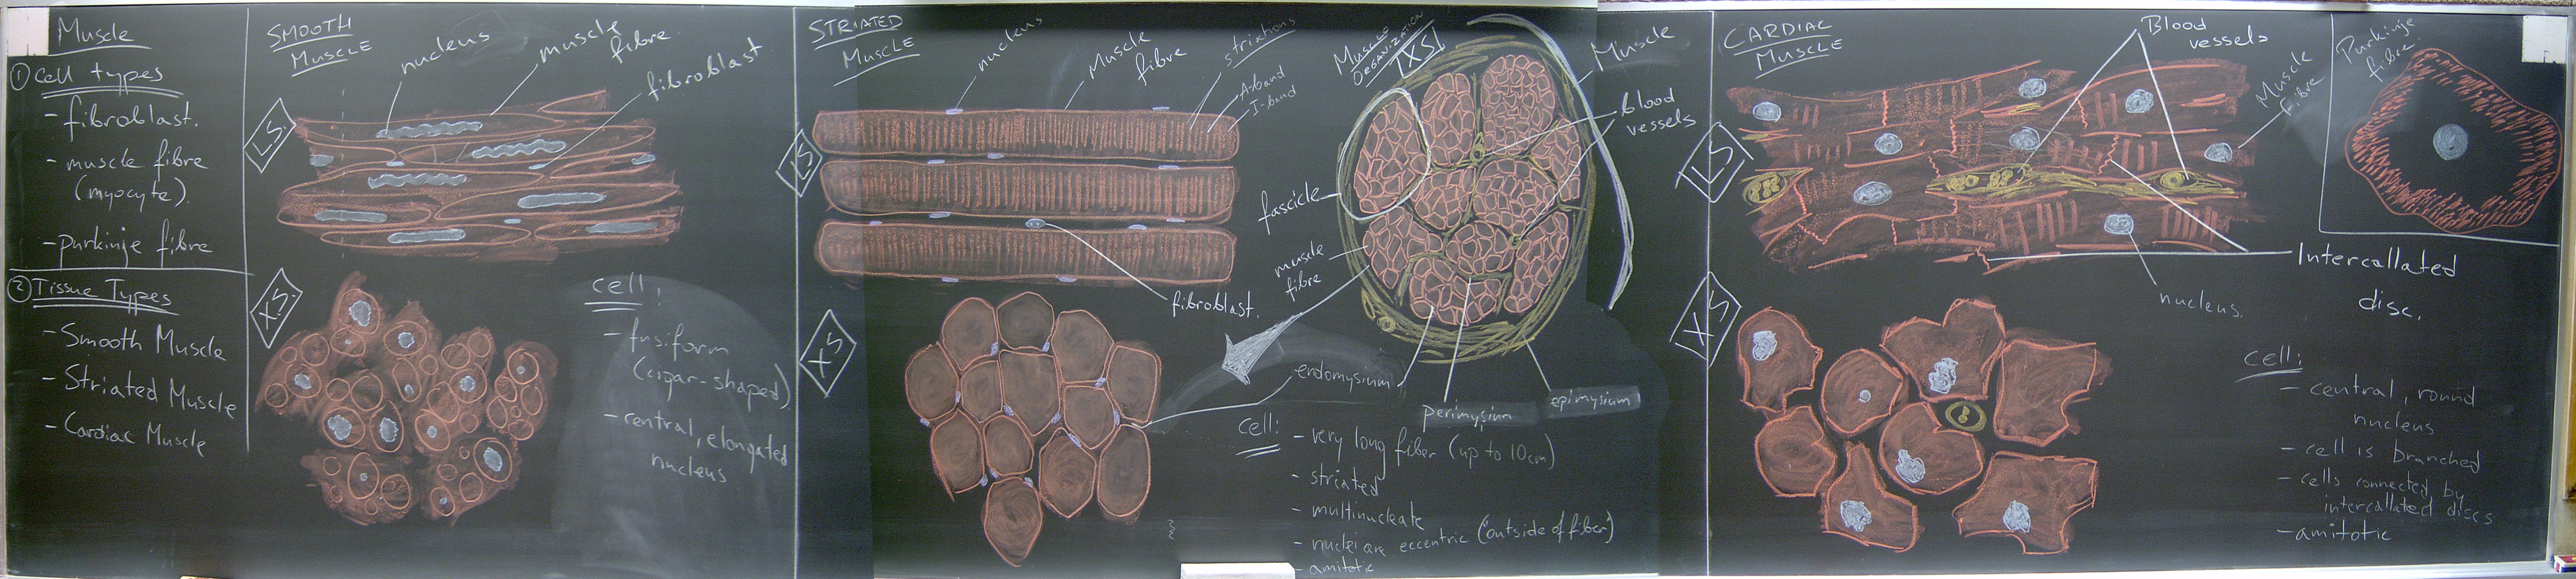 Muscle
① Cell types
- fibroblast.
- muscle fibre
(myocyte).
- purkinje fibre
② Tissue Types
- Smooth Muscle
- Striated Muscle
- Cardiac Muscle
SMOOTH
MUSCLE
nucleus
muscle
fibre
fibroblast
LS
XS
cell:
- fusiform
(cigar-shaped)
- central, elongated
nucleus
STRIATED
MUSCLE
nucleus
Muscle
fibre
striations
A-band
I-band
LS
fibroblast.
XS
MUSCLE
ORGANIZATION
XS
Muscle
Blood
vessels
fascicle
muscle
fibre
endomysium
perimysium
epimysium
cell:
- very long fiber (up to 10cm)
- striated
- multinucleate
- nuclei are eccentric ("outside of fiber")
- amitotic
CARDIAC
MUSCLE
Blood
vessels
Muscle
fibre
LS
Intercallated
disc.
nucleus.
XS
cell:
- central, round
nucleus
- cell is branched
- cells connected by
intercallated discs
- amitotic
Purkinje
fibre.